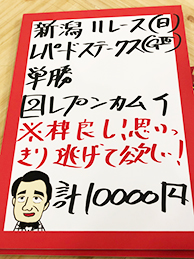 新潟11レース(日)
レパードステークス(GⅢ)
単勝
2レプンカムイ
※枠良し!思いっ
きり逃げて欲しい!
計10000円